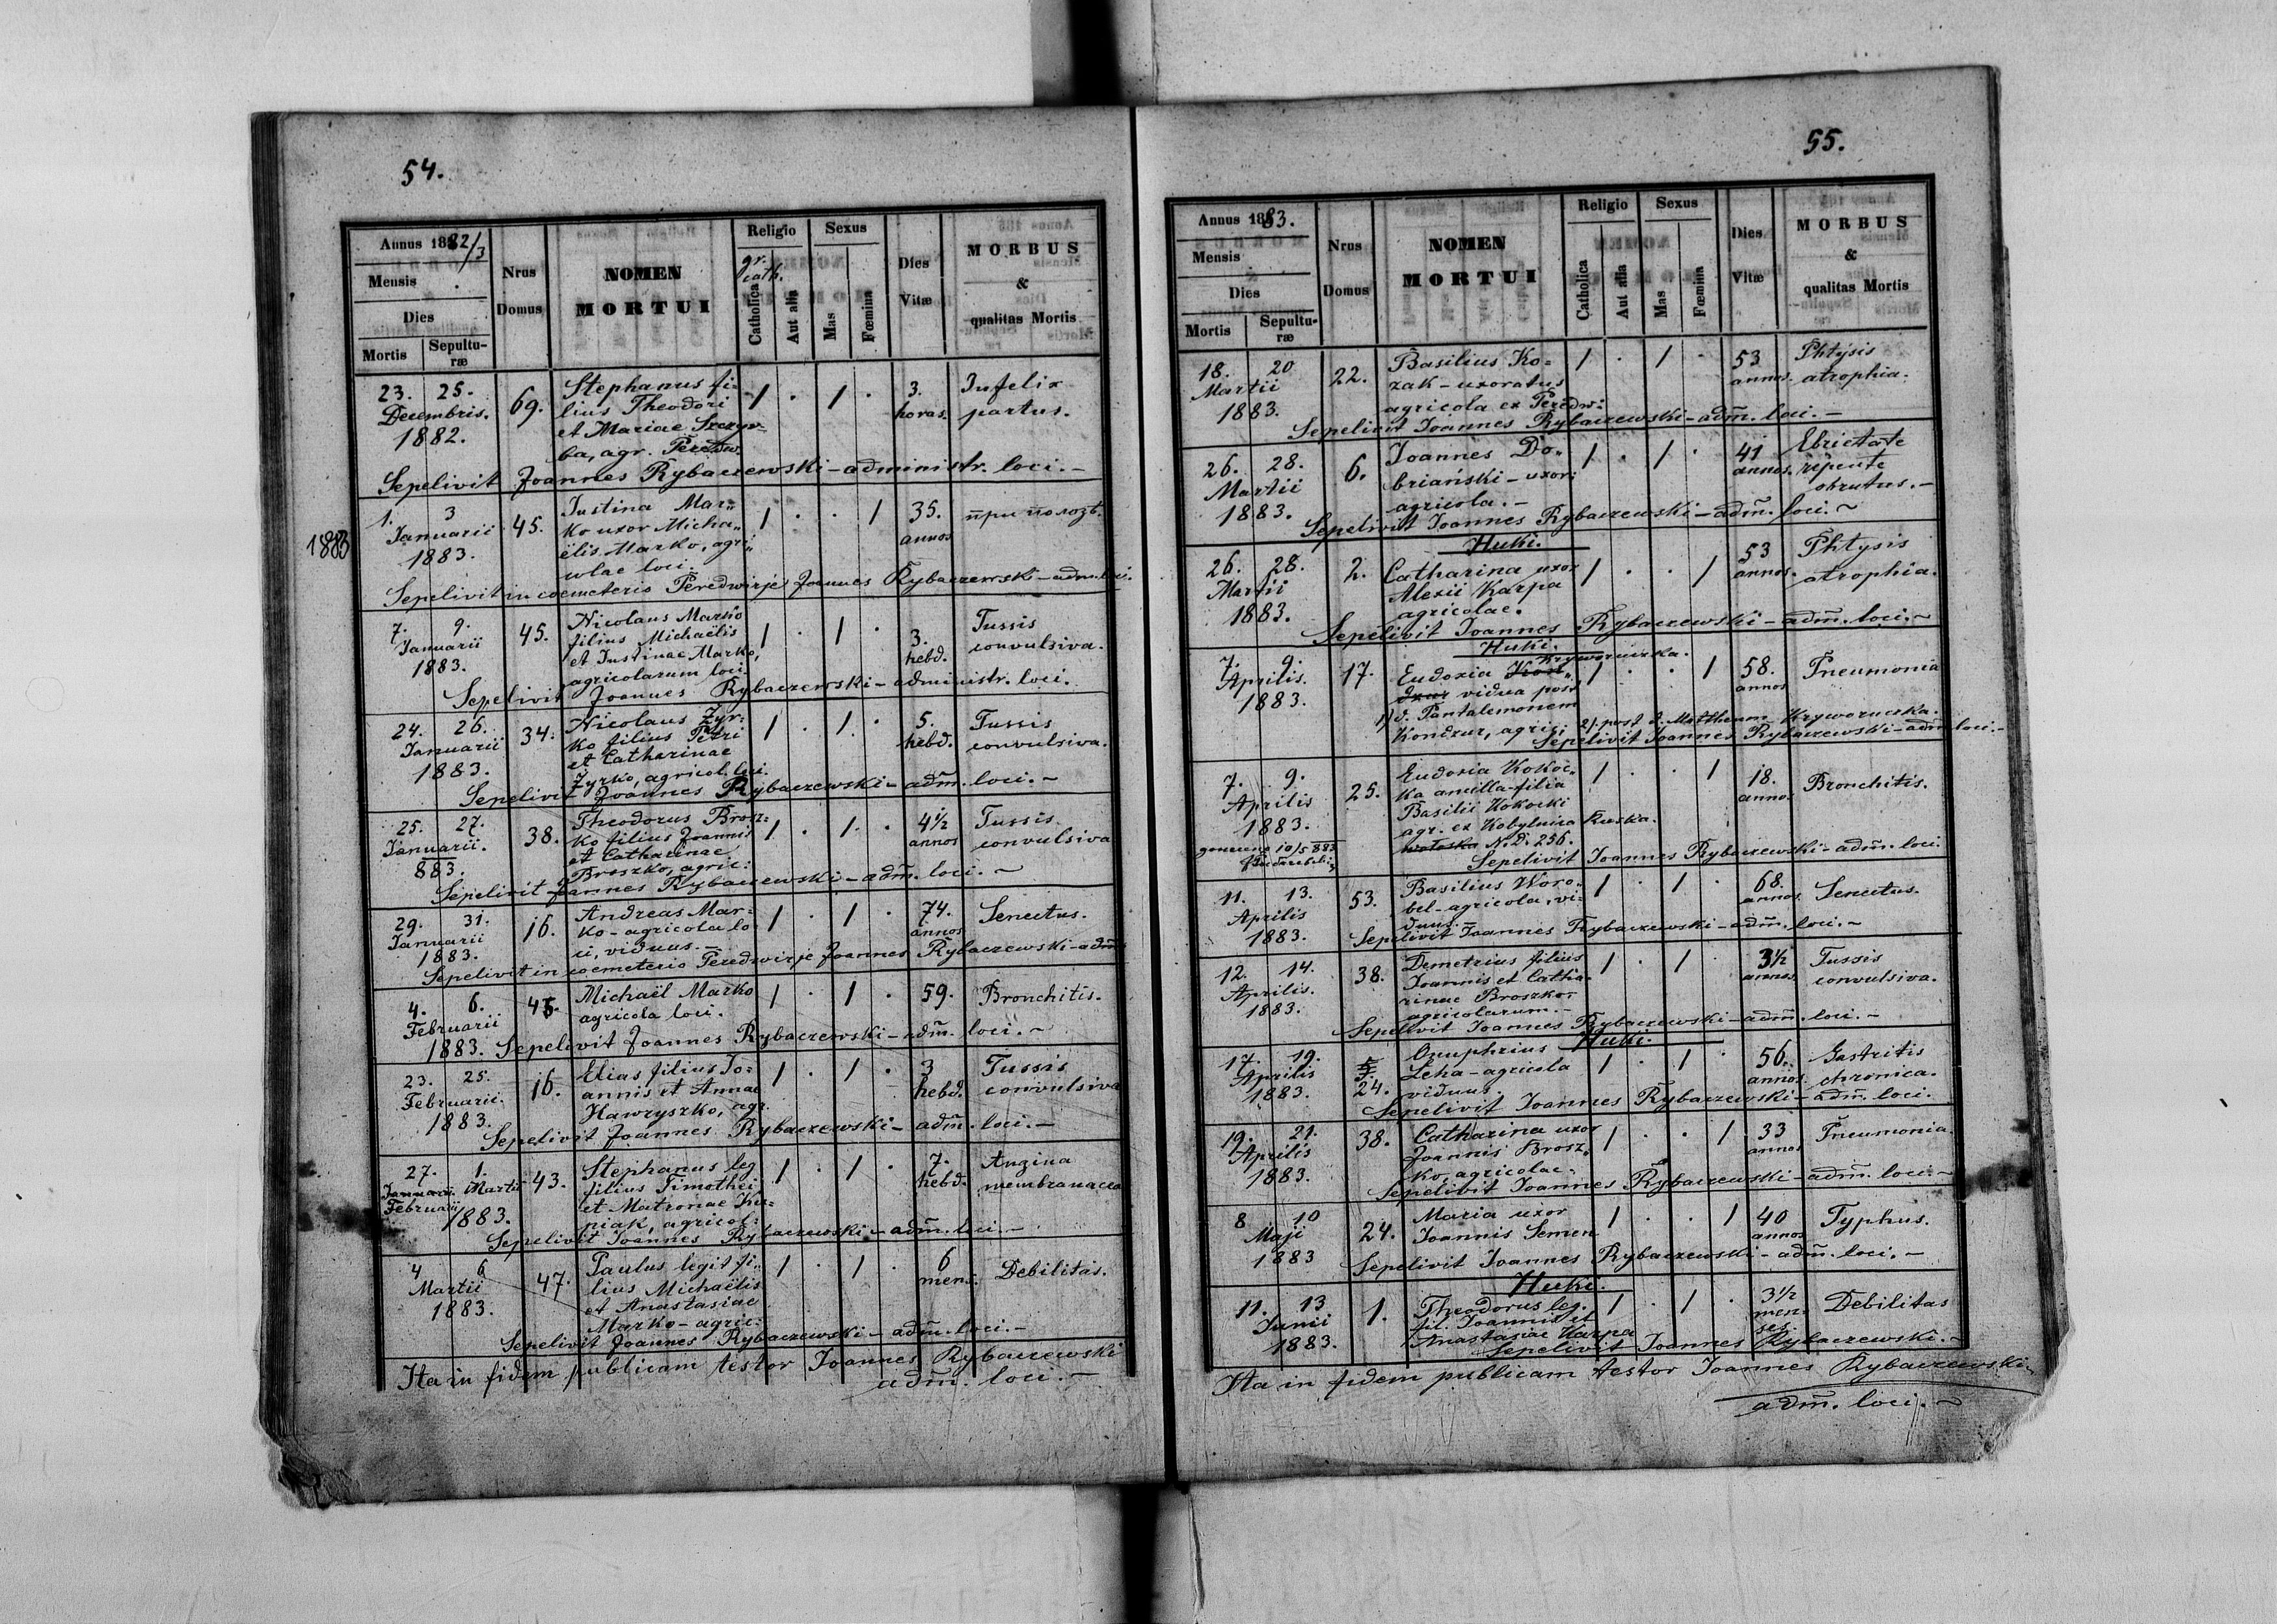 54.
Annus 1882/3
Mensis
Dies
Mortis
Sepultu-
ræ
Nrus
Domus
NOMEN
MORTUI
Religio
gr.
cath.
Catholica
Aut alia
Sexus
Mas
Fœmina
Dies
Vitæ
MORBUS
&
qualitas Mortis
23. 25. 69. Stephanus fi- 1 . 1 . 3. Infelix
Decembris. lius Theodori horas. partus.
1882. et Mariae
ba, agr.
Sepelivit Joannes Rybaczewski - administr. loci. -
1883
1. 3 45. Justina Mar„ 1 . . 1 35. при полозѣ.
Januarii ko uxor Micha„ annos
1883. ëlis Marko, agri„
colae loci.
Sepelivit in coemeterio Peredwirje Joannes Rybaczewski - adm. loci.
7. 9. 45. Nicolaus Marko 1 . 1 . 3. Tussis
Januarii filius Michaëlis hebd. convulsiva.
1883. et Justinae Marko,
agricolarum loci.
Sepelivit Joannes Rybaczewski - administr. loci.
24. 26. 34. Nicolaus Żyr- 1 . 1 . 5. Tussis
Januarii ko filius Petri hebd. convulsiva.
1883. et Catharinae
Żyrko, agricol. loci.
Sepelivit Joannes Rybaczewski - adm. loci. -
25. 27. 38. Theodorus Brosz- 1 . 1 . 4½ Tussis
Januarii. ko filius Joannis annos convulsiva
883. et Catharinae
Broszko, agric:
Sepelivit Joannes Rybaczewski - adm. loci. -
29. 31. 16. Andreas Mar- 1 . 1 . 74. Senectus.
Januarii ko - agricola lo- annos
1883. ci, viduus. -
Sepelivit in coemeterio Peredwirje Joannes Rybaczewski - adm:
4. 6. 45. Michaël Marko 1 . 1 . 59. Bronchitis.
Februarii agricola loci.
1883. Sepelivit Joannes Rybaczewski - adm. loci. -
23. 25. 16. Elias filius Jo- 1 . 1 . 3 Tussis
Februarii. annis et Annae hebd. convulsiva
1883. Hawryszko, agr.
Sepelivit Joannes Rybaczewski - adm. loci. -
27. 1. 43. Stephanus leg 1 . 1 . 7. Angina
Januarii Martii filius Timothei hebd. membranacea
Februarii et Matronae Ku-
1883. piak, agricol:
Sepelivit Joannes Rybaczewski - adm. loci. -
4 6 47. Paulus legit fi„ 1 . 1 . 6 Debilitas.
Martii lius Michaëlis mens.
1883. et Anastasiae
Marko - agric:
Sepelivit Joannes Rybaczewski - adm. loci. -
Ita in fidem publicam testor Joannes Rybaczewski
adm. loci. -
55.
Annus 1883.
Mensis
Dies
Mortis
Sepultu-
ræ
Nrus
Domus
NOMEN
MORTUI
Religio
Catholica
Aut alia
Sexus
Mas
Fœmina
Dies
Vitæ
MORBUS
&
qualitas Mortis
18. 20 22. Basilius Ko- 1 . 1 . 53 Phtysis
Martii zak - uxoratus annos. atrophia.
1883. agricola ex Peredwi:
Sepelivit Joannes Rybaczewski - adm. loci. -
26. 28. 6. Joannes Do„ 1 . 1 . 41 Ebrietate
Martii briański - uxor: annos. repente
1883. agricola. - obrutus. -
Sepelivit Joannes Rybaczewski - adm. loci. -
Huki.
26. 28. 2. Catharina uxor 1 . . 1 53 Phtysis
Martii Alexii Karpa annos. atrophia.
1883. agricolae.
Sepelivit Joannes Rybaczewski - adm. loci. -
Huki.
Kryworuczka.
7. 9. 17. Eudoxia Kon„ 1 . . 1 58. Pneumonia
Aprilis. dzur vidua post annos
1883. 1) d. Pantalemonem
Kondzur, agrici 2) post d. Mattheum Kryworuczka.
Sepelivit Joannes Rybaczewski - adm. loci. -
7. 9. 25. Eudoxia Kokoc„ 1 . . 1 18. Bronchitis.
Aprilis ka ancilla - filia annos
1883. Basilii Kokocki
agr. ex Kobylnica Ruska.
wołoska N. D. 256.
10/5 883
Sepelivit Joannes Rybaczewski - adm. loci.
11. 13. 53. Basilius Woro- 1 . 1 . 68. Senectus.
Aprilis bel - agricola, vi- annos
1883. duus.
Sepelivit Joannes Rybaczewski - adm. loci. -
12. 14. 38. Demetrius filius 1 . 1 . 3½ Tussis
Aprilis. Joannis et Catha- annos. convulsiva.
1883. rinae Broszko,
agricolarum. -
Sepelivit Joannes Rybaczewski - adm. loci. -
Huki.
17. 19. Onuphrius 1 . 1 . 56. Gastritis
Aprilis Leha - agricola annos. chronica.
1883. 24. viduus.
Sepelivit Joannes Rybaczewski - adm. loci.
19. 21. 38. Catharina uxor 1 . . 1 33 Pneumonia.
Aprilis Joannis Brosz„ annos
1883. ko, agricolae.
Sepelivit Joannes Rybaczewski - adm. loci. -
8 10 24. Maria uxor 1 . . 1 40 Typhus.
Maji Joannis Semen annos
1883 Sepelivit Joannes Rybaczewski - adm. loci. -
Huki.
11. 13 1. Theodorus leg. 1 . 1 . 3½ Debilitas
Junii fil. Joannis et men-
1883. Anastasiae Karpa ses.
Sepelivit Joannes Rybaczewski. -
Ita in fidem publicam testor Joannes Rybaczewski
adm. loci. -